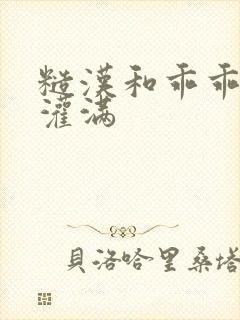 糙漢和乖乖
灌滿
貝洛哈里桑塔